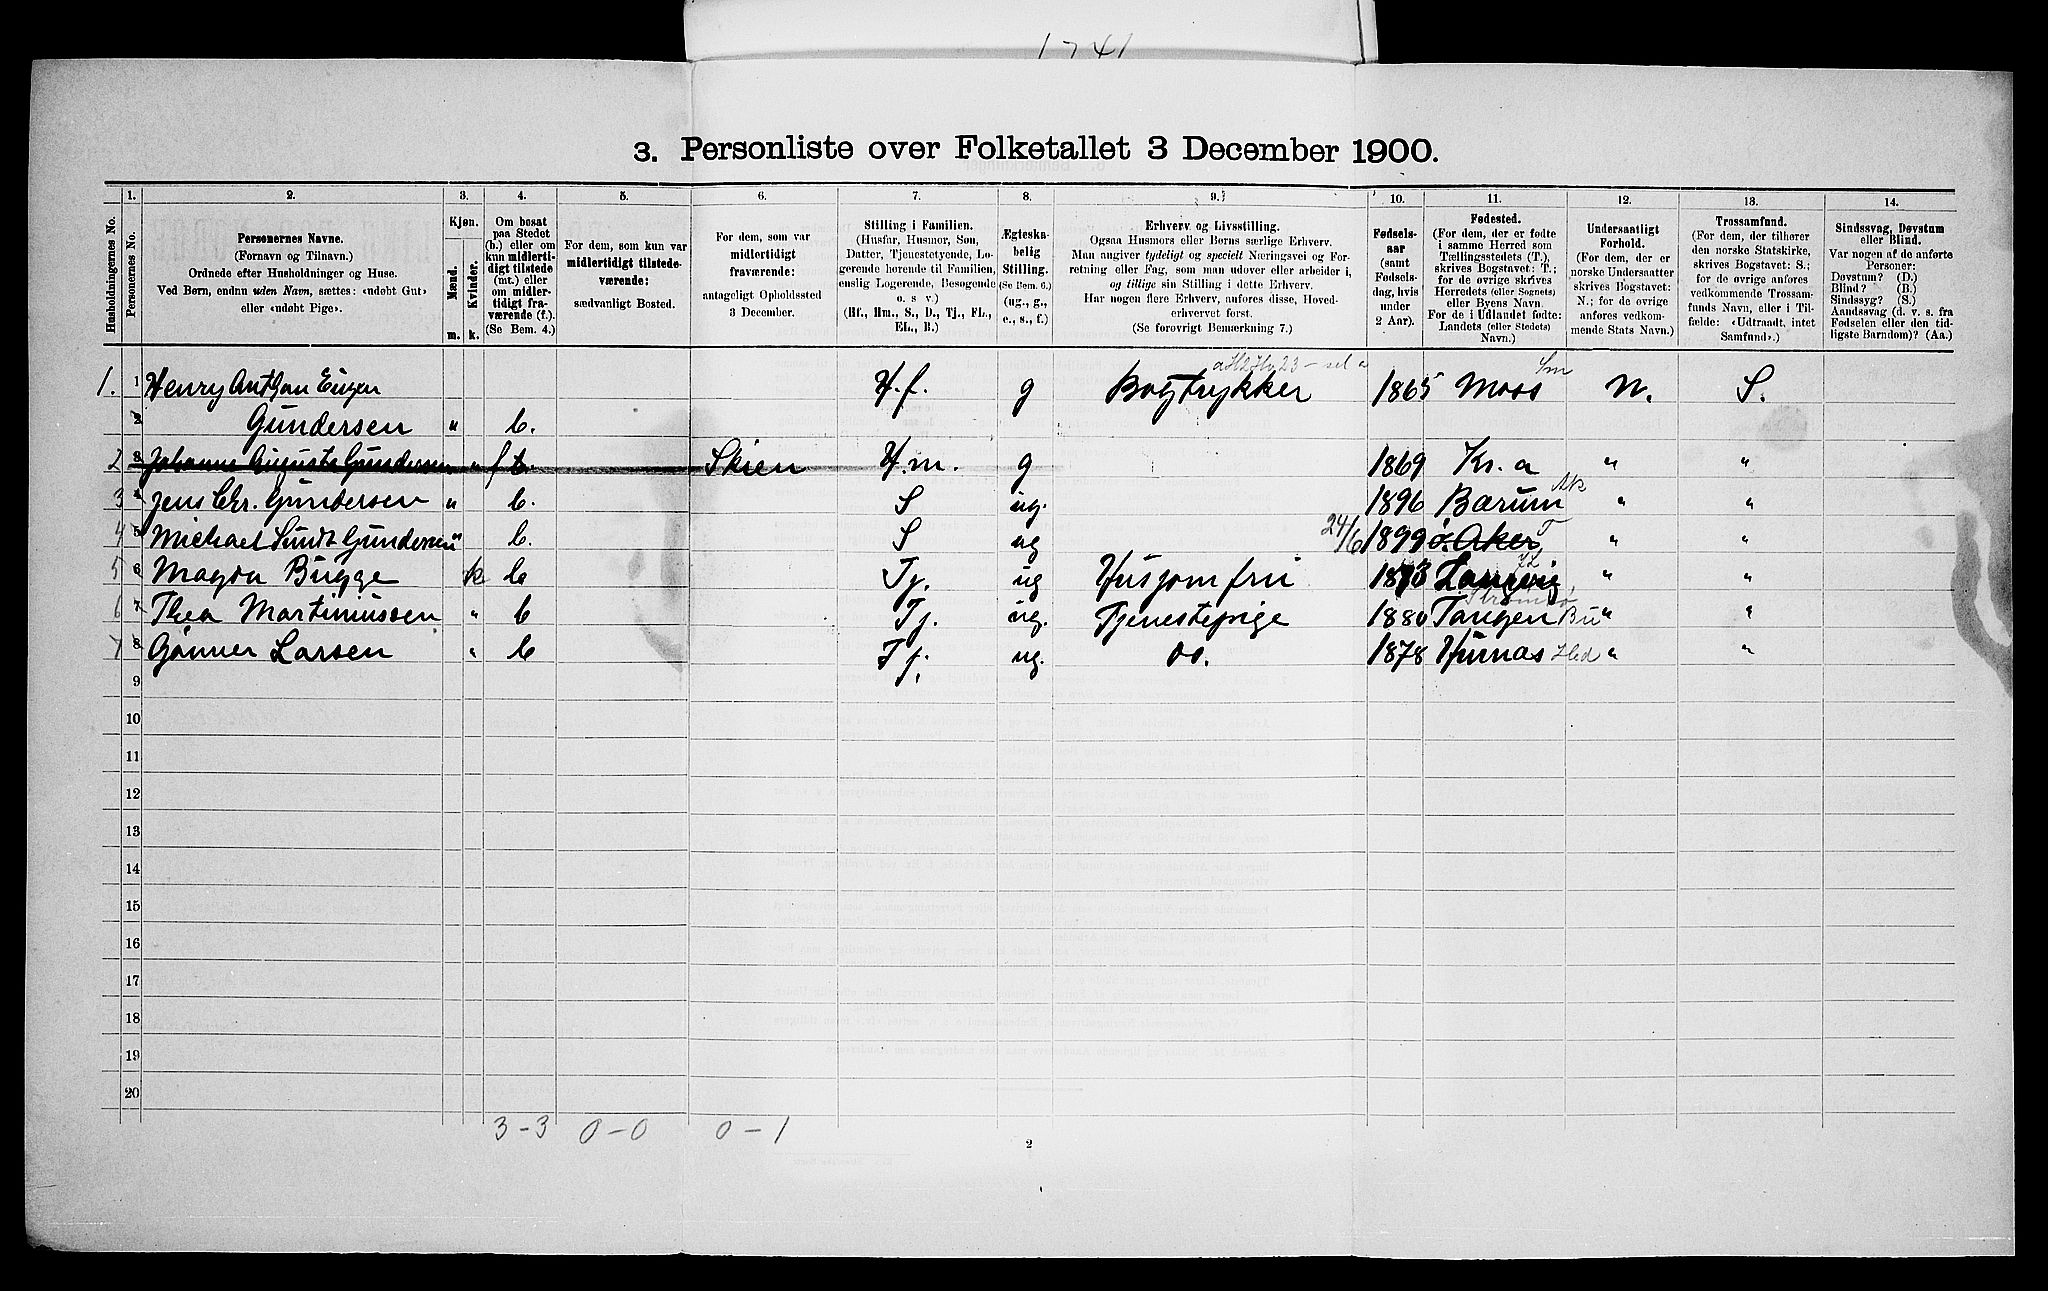 1741
3. Personliste over Folketallet 3 December 1900.
Husholdningernes No.
1.
Personernes No.
2.
Personernes Navne.
(Fornavn og Tilnavn.)
Ordnede efter Husholdninger og Huse.
Ved Børn, endnu uden Navn, sættes: «udøbt Gut»
eller «udøbt Pige».
3.
Kjøn.
Mænd.
Kvinder.
m. k.
4.
Om bosat
paa Stedet
(b.) eller om
kun midler-
tidigt tilstede
(mt.) eller
om midler-
tidigt fra-
værende (f.).
(Se Bem. 4.)
5.
For dem, som kun var
midlertidigt tilstede-
værende:
sædvanligt Bosted.
6.
For dem, som var
midlertidigt
fraværende:
antageligt Opholdssted
3 December.
7.
Stilling i Familien.
(Husfar, Husmor, Søn,
Datter, Tjenestetyende, Lo-
gerende hørende til Familien,
enslig Logerende, Besøgende
o. s. v.)
(Hf., Hm., S., D., Tj., FL.,
EL., B.)
8.
Ægteska-
belig
Stilling.
(Se Bem. 6.)
(ug., g.,
e., s., f.)
9.
Erhverv og Livsstilling.
Ogsaa Husmors eller Børns særlige Erhverv.
Man angiver tydeligt og specielt Næringsvei og For-
retning eller Fag, som man udøver eller arbeider i,
og tillige sin Stilling i dette Erhverv.
Har nogen flere Erhverv, anføres disse, Hoved-
erhvervet først.
(Se forøvrigt Bemerkning 7.)
10.
Fødsels-
aar
(samt
Fødsels-
dag, hvis
under
2 Aar).
11.
Fødested.
(For dem, der er fødte
i samme Herred som
Tællingsstedets (T.),
skrives Bogstavet: T.;
for de øvrige skrives
Herredets (eller Sognets)
eller Byens Navn.
For de i Udlandet fødte:
Landets (eller Stedets)
Navn.)
12.
Undersaatligt
Forhold.
(For dem, der er
norske Undersaatter
skrives Bogstavet:
N.; for de øvrige
anføres vedkom-
mende Stats Navn.)
13.
Trossamfund.
(For dem, der tilhører
den norske Statskirke,
skrives Bogstavet: S.;
for de øvrige anføres
vedkommende Trossam-
funds Navn, eller i Til-
fælde: «Udtraadt, intet
Samfund».)
14.
Sindssvag, Døvstum
eller Blind.
Var nogen af de anførte
Personer:
Døvstum? (D.)
Blind? (B.)
Sindssyg? (S.)
Aandssvag (d. v. s. fra
Fødselen eller den tid-
ligste Barndom)? (Aa.)
1. 1 Henry Anthon Eugen H.f. g Bogtrykker 1865 Moss Sm N. S.
2 Gundersen " b.
2 3 Johanne Augusta Gundersen " f b. Skien H.m. g 1869 Kr.a " "
3 4 Jens Chr. Gundersen " b. S ug. 1896 Bærum Ak " "
4 5 Michael Sundt Gundersen " b. S ug 24/6 1899 ø. Aker T " "
5 6 Magda Bugge k b Tj. ug Husjomfru 1873 Langvig " "
6 7 Thea Martiniussen " b Tj. ug. Tjenestepige 1880 Tangen Strømsø Bu " "
7 8 Gunner Larsen " b Tj. ug. do. 1878 Hurnas Hed " "
9
10
11
12
13
14
15
16
17
18
19
20
3-3 0-0 0-1
2